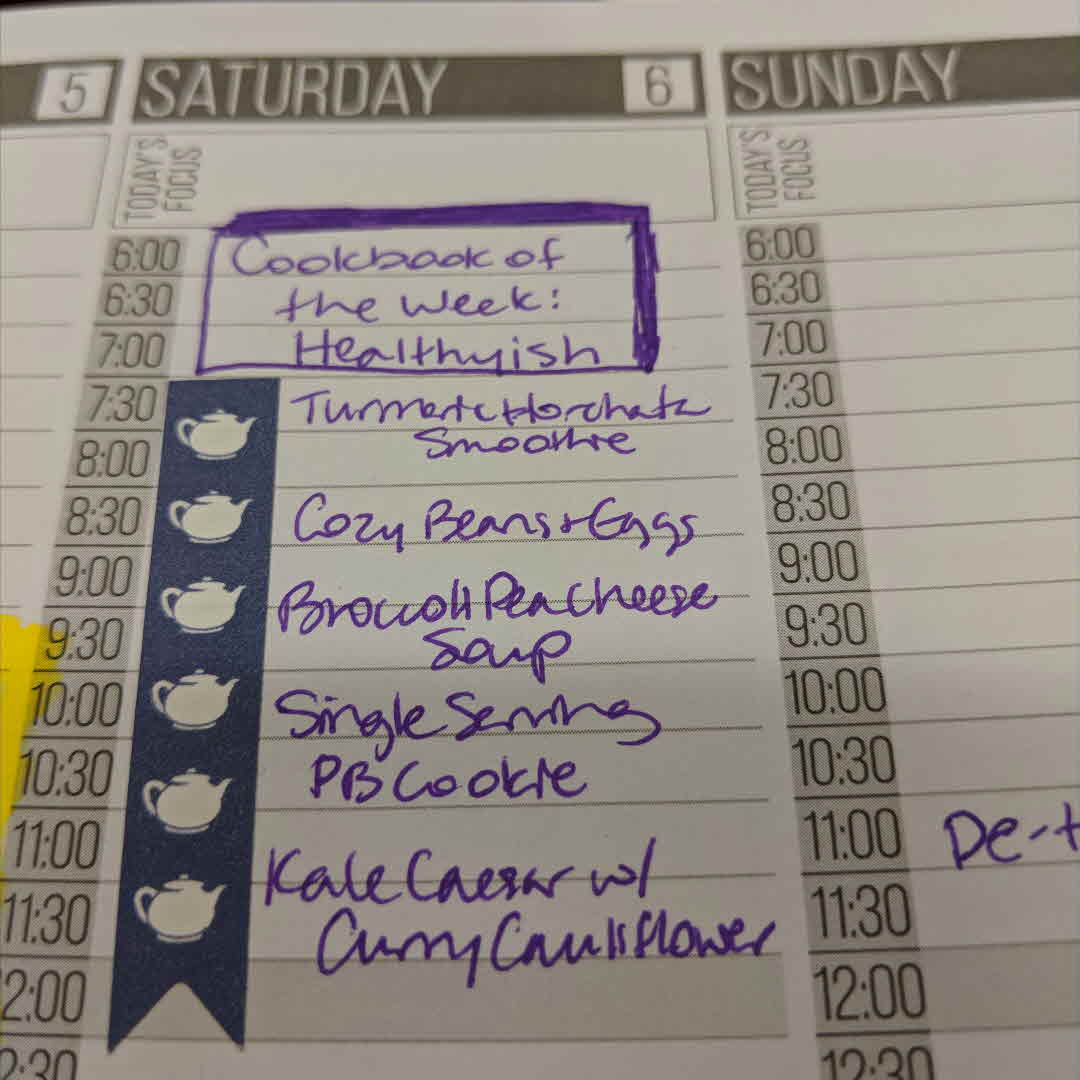 5
SATURDAY
6
SUNDAY
TODAY'S
FOCUS
TODAY'S
FOCUS
6:00
6:30
7:00
7:30
8:00
8:30
9:00
9:30
10:00
10:30
11:00
11:30
2:00
2:30
Cookbook of
the week:
Healthyish
Turmeric Horchata
Smoothie
Cozy Beans + Eggs
Broccoli Pea Cheese
Soup
Single Serving
PB Cookie
Kale Caesar w/
Curry Cauliflower
6:00
6:30
7:00
7:30
8:00
8:30
9:00
9:30
10:00
10:30
11:00
De-t
11:30
12:00
12:30